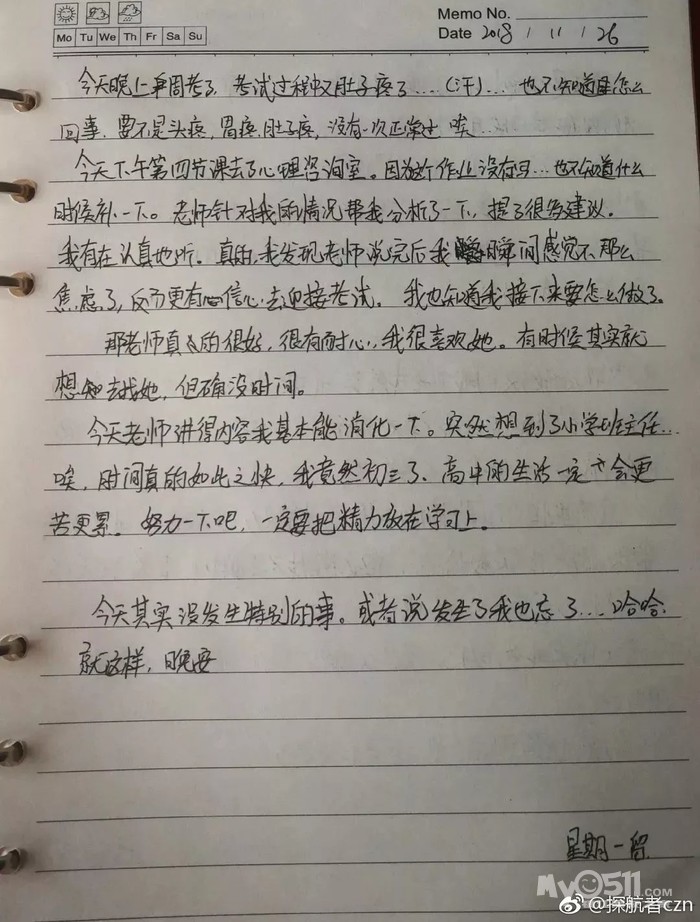 Memo No.
Mo Tu We Th Fr Sa Su
Date 2018 / 11 / 26
今天晚上单周考了，考试过程中又肚子疼了……（汗）…… 也不知道是怎么
回事，要不是头疼，胃疼，肚子疼，没有一次正常过 唉…
今天下午第四节课去了心理咨询室。因为这个作业没有写… 也不知道什么
时候补一下。老师针对我的情况帮我分析了一下，提了很多建议。
我有在认真地听。真的，我发现老师说完后我瞬间感觉不那么
焦虑了，反而更有信心去迎接考试。我也知道我接下来要怎么做了。
那老师真的很好，很有耐心，我很喜欢她。有时候其实就
想去找她，但确没时间。
今天老师讲得内容我基本能消化一下。突然想到了小学班主任…
唉，时间真的如此之快，我竟然初三了、高中的生活一定会更
苦更累。努力一下吧，一定要把精力放在学习上。
今天其实没发生特别的事。或者说发生了我也忘了……哈哈，
就这样，晚安
星期一留
My0511.com
@探航者czn